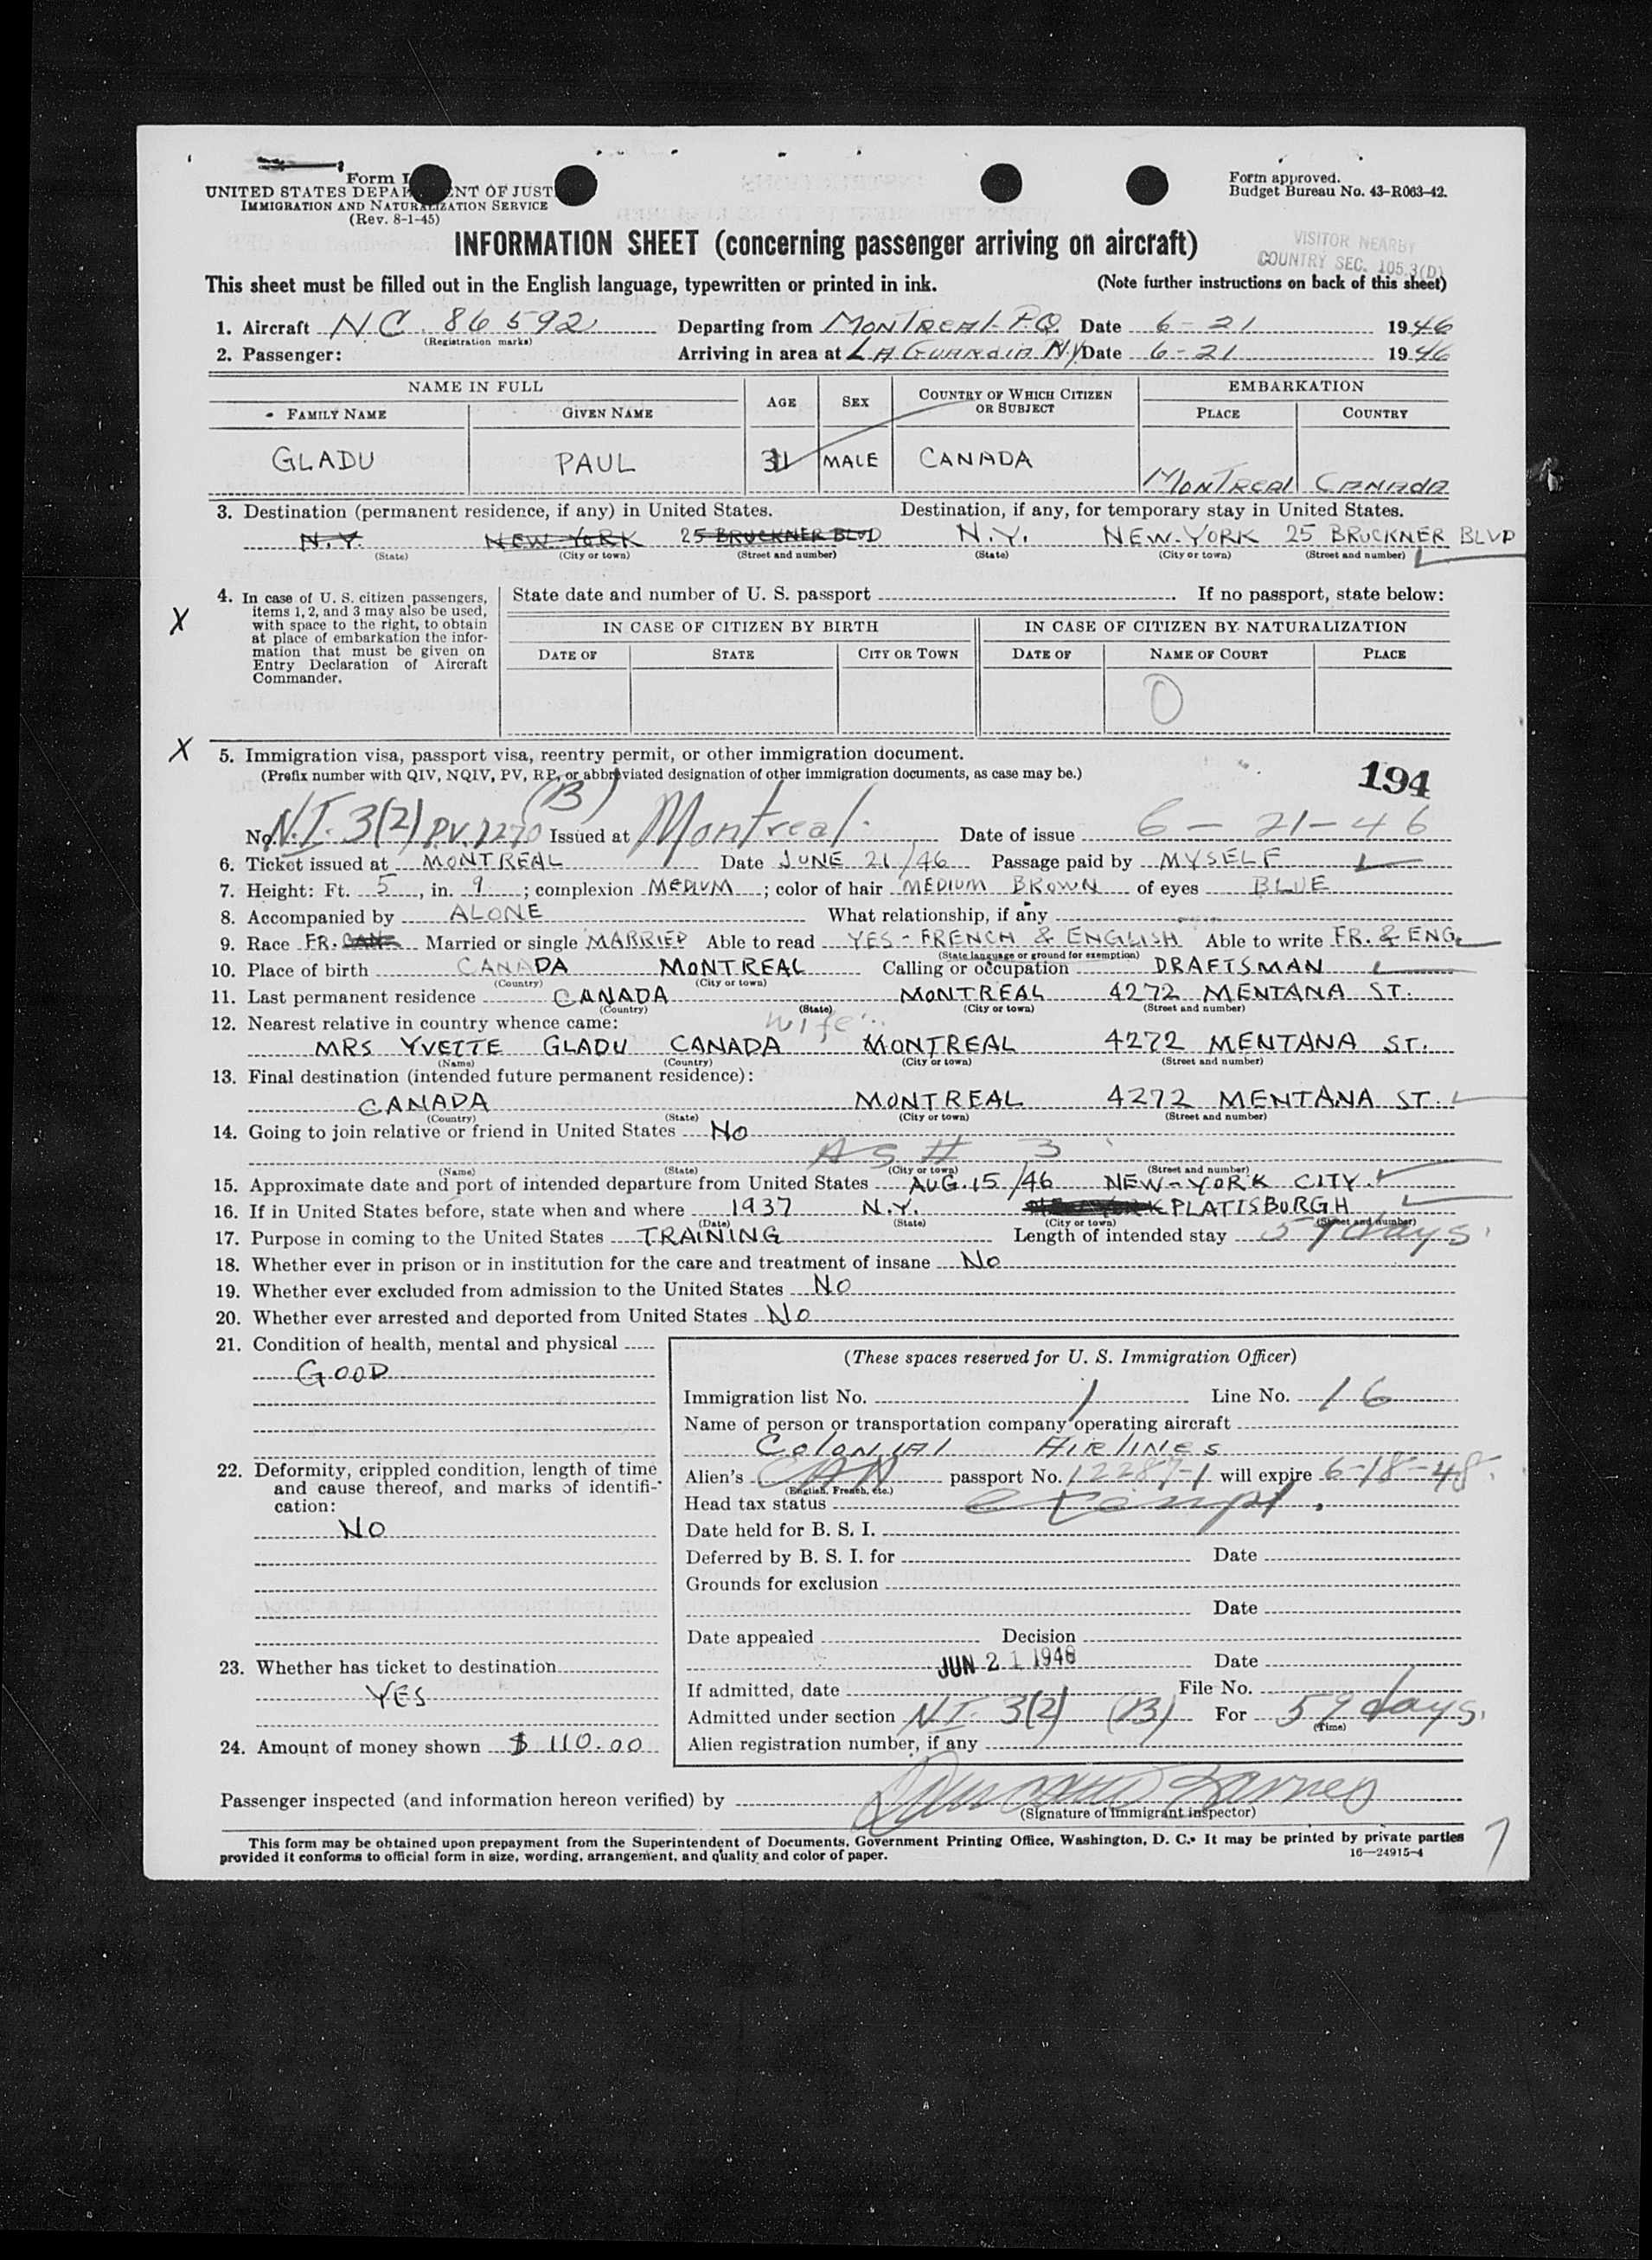 Form I
UNITED STATES DEPAR ENT OF JUST
IMMIGRATION AND NATURALIZATION SERVICE
(Rev. 8-1-45)
Form approved.
Budget Bureau No. 43-R063-42.
INFORMATION SHEET (concerning passenger arriving on aircraft)
VISITOR NEARBY
COUNTRY SEC. 105.3(D)
This sheet must be filled out in the English language, typewritten or printed in ink. (Note further instructions on back of this sheet)
1. Aircraft N.C. 86592 Departing from MONTREAL P.Q. Date 6-21 1946
(Registration marks)
2. Passenger: Arriving in area at LA GUARDIA N.Y. Date 6-21 1946
NAME IN FULL AGE SEX COUNTRY OF WHICH CITIZEN OR SUBJECT EMBARKATION
FAMILY NAME GIVEN NAME PLACE COUNTRY
GLADU PAUL 31 MALE CANADA MONTREAL CANADA
3. Destination (permanent residence, if any) in United States. Destination, if any, for temporary stay in United States.
N.Y. NEW-YORK 25 BRUCKNER BLVD N.Y. NEW-YORK 25 BRUCKNER BLVD
(State) (City or town) (Street and number) (State) (City or town) (Street and number)
X
4. In case of U. S. citizen passengers, items 1, 2, and 3 may also be used, with space to the right, to obtain at place of embarkation the information that must be given on Entry Declaration of Aircraft Commander.
State date and number of U. S. passport If no passport, state below:
IN CASE OF CITIZEN BY BIRTH IN CASE OF CITIZEN BY NATURALIZATION
DATE OF STATE CITY OR TOWN DATE OF NAME OF COURT PLACE
0
X
5. Immigration visa, passport visa, reentry permit, or other immigration document.
(Prefix number with QIV, NQIV, PV, RP, or abbreviated designation of other immigration documents, as case may be.)
194
No. N.I. 3(2) (B) P.V. 1270 Issued at Montreal Date of issue 6-21-46
6. Ticket issued at MONTREAL Date JUNE 21/46 Passage paid by MYSELF
7. Height: Ft. 5, in. 9; complexion MEDIUM; color of hair MEDIUM BROWN of eyes BLUE
8. Accompanied by ALONE What relationship, if any
9. Race FR. CAN Married or single MARRIED Able to read YES - FRENCH & ENGLISH Able to write FR. & ENG.
(State language or ground for exemption)
10. Place of birth CANADA MONTREAL Calling or occupation DRAFTSMAN
(Country) (City or town)
11. Last permanent residence CANADA MONTREAL 4272 MENTANA ST.
(Country) (State) (City or town) (Street and number)
12. Nearest relative in country whence came: wife
MRS YVETTE GLADU CANADA MONTREAL 4272 MENTANA ST.
(Name) (Country) (City or town) (Street and number)
13. Final destination (intended future permanent residence):
CANADA MONTREAL 4272 MENTANA ST.
(Country) (State) (City or town) (Street and number)
14. Going to join relative or friend in United States NO
AS # 3
(Name) (State) (City or town) (Street and number)
15. Approximate date and port of intended departure from United States AUG. 15/46 NEW-YORK CITY
16. If in United States before, state when and where 1937 N.Y. PLATTSBURGH
(Date) (State) (City or town) (Street and number)
17. Purpose in coming to the United States TRAINING Length of intended stay 59 days
18. Whether ever in prison or in institution for the care and treatment of insane NO
19. Whether ever excluded from admission to the United States NO
20. Whether ever arrested and deported from United States NO
21. Condition of health, mental and physical
GOOD
22. Deformity, crippled condition, length of time and cause thereof, and marks of identification:
NO
23. Whether has ticket to destination
YES
24. Amount of money shown $ 110.00
(These spaces reserved for U. S. Immigration Officer)
Immigration list No. 1 Line No. 16
Name of person or transportation company operating aircraft
COLONIAL AIRLINES
Alien's CAN passport No. 12287-1 will expire 6-18-48
(English, French, etc.)
Head tax status exempt.
Date held for B. S. I.
Deferred by B. S. I. for Date
Grounds for exclusion
Date
Date appealed Decision
JUN 21 1946 Date
If admitted, date File No.
Admitted under section N I 3(2) (B) For 59 days.
(Time)
Alien registration number, if any
Passenger inspected (and information hereon verified) by
(Signature of immigrant inspector)
This form may be obtained upon prepayment from the Superintendent of Documents, Government Printing Office, Washington, D. C. It may be printed by private parties
provided it conforms to official form in size, wording, arrangement, and quality and color of paper. 16—24915-4